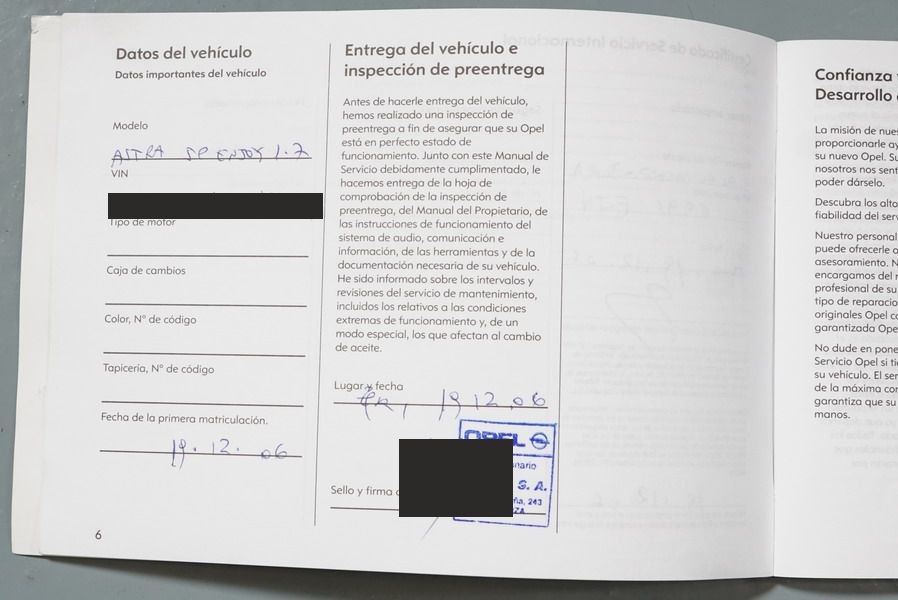 Datos del vehículo
Datos importantes del vehículo
Modelo
ASTRA 5P ENJOY 1.7
VIN
Tipo de motor
Caja de cambios
Color, N° de código
Tapicería, N° de código
Fecha de la primera matriculación.
19. 12. 06
6
Entrega del vehículo e
inspección de preentrega
Antes de hacerle entrega del vehículo,
hemos realizado una inspección de
preentrega a fin de asegurar que su Opel
está en perfecto estado de
funcionamiento. Junto con este Manual de
Servicio debidamente cumplimentado, le
hacemos entrega de la hoja de
comprobación de la inspección de
preentrega, del Manual del Propietario, de
las instrucciones de funcionamiento del
sistema de audio, comunicación e
información, de las herramientas y de la
documentación necesaria de su vehículo.
He sido informado sobre los intervalos y
revisiones del servicio de mantenimiento,
incluidos los relativos a las condiciones
extremas de funcionamiento y, de un
modo especial, los que afectan al cambio
de aceite.
Lugar y fecha
19 12 06
OPEL
S. A.
243
ZA
Sello y firma
Confianza
Desarrollo
La misión de
proporcionarle
su nuevo Opel.
nosotros nos
poder dárselo.
Descubra los
fiabilidad del
Nuestro personal
puede ofrecerle
asesoramiento.
encargamos del
profesional de su
tipo de
originales Opel
garantizada
No dude en
Servicio Opel si
su vehículo. El
de la máxima
garantiza que su
manos.